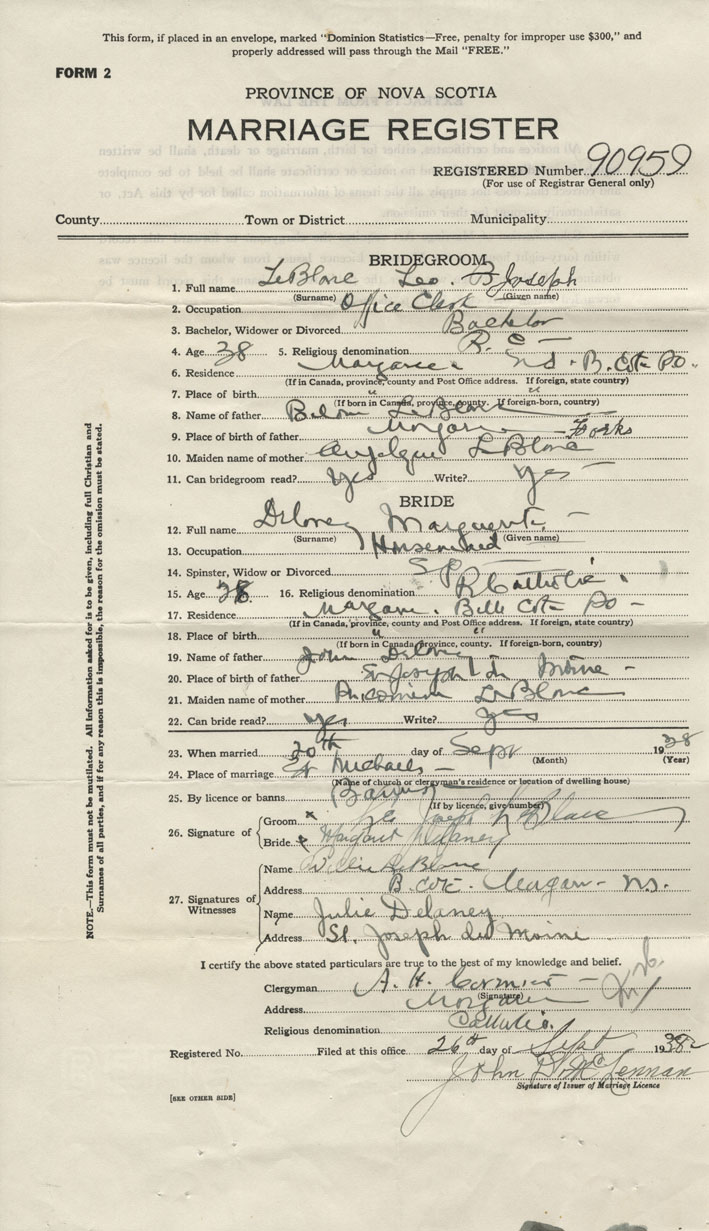 This form, if placed in an envelope, marked "Dominion Statistics—Free, penalty for improper use $300," and
properly addressed will pass through the Mail "FREE."
FORM 2
PROVINCE OF NOVA SCOTIA
MARRIAGE REGISTER
REGISTERED Number 90959
(For use of Registrar General only)
County Town or District Municipality
BRIDEGROOM
1. Full name LeBlanc Leo. Joseph
(Surname) (Given name)
2. Occupation Office Clerk
3. Bachelor, Widower or Divorced Bachelor
4. Age 38 5. Religious denomination R. C —
6. Residence Margaree N S. B. Cote PO.
(If in Canada, province, county and Post Office address. If foreign, state country)
7. Place of birth " "
(If born in Canada, province, county. If foreign-born, country)
8. Name of father LeBlanc
9. Place of birth of father Margaree Forks
10. Maiden name of mother LeBlanc
11. Can bridegroom read? Yes Write? Yes —
BRIDE
12. Full name Delaney Marguerite —
(Surname) (Given name)
13. Occupation
14. Spinster, Widow or Divorced Sp
15. Age 38 16. Religious denomination R Catholic.
17. Residence Margaree. Belle Cote PO —
(If in Canada, province, county and Post Office address. If foreign, state country)
18. Place of birth " "
(If born in Canada, province, county. If foreign-born, country)
19. Name of father John Delaney
20. Place of birth of father St Joseph du Moine —
21. Maiden name of mother LeBlanc
22. Can bride read? Yes Write? Yes
23. When married 20th day of Sept 1938
(Month) (Year)
24. Place of marriage St Michaels —
(Name of church or clergyman's residence or location of dwelling house)
25. By licence or banns (Banns)
(If by licence, give number)
26. Signature of Groom x Leo Joseph LeBlanc
Bride x Margaret Delaney
27. Signatures of Witnesses
Name Willie LeBlanc
Address B. Cote. Margaree — N.S.
Name Julie Delaney
Address St. Joseph du Moine
I certify the above stated particulars are true to the best of my knowledge and belief.
Clergyman A. H. Cormier —
(Signature)
Address Margaree
Religious denomination Catholic.
Registered No. Filed at this office 26th day of Sept 1938
John D. McLennan
Signature of Issuer of Marriage Licence
[SEE OTHER SIDE]
NOTE.—This form must not be mutilated. All information asked for is to be given, including full Christian and
Surnames of all parties, and if for any reason this is impossible, the reason for the omission must be stated.